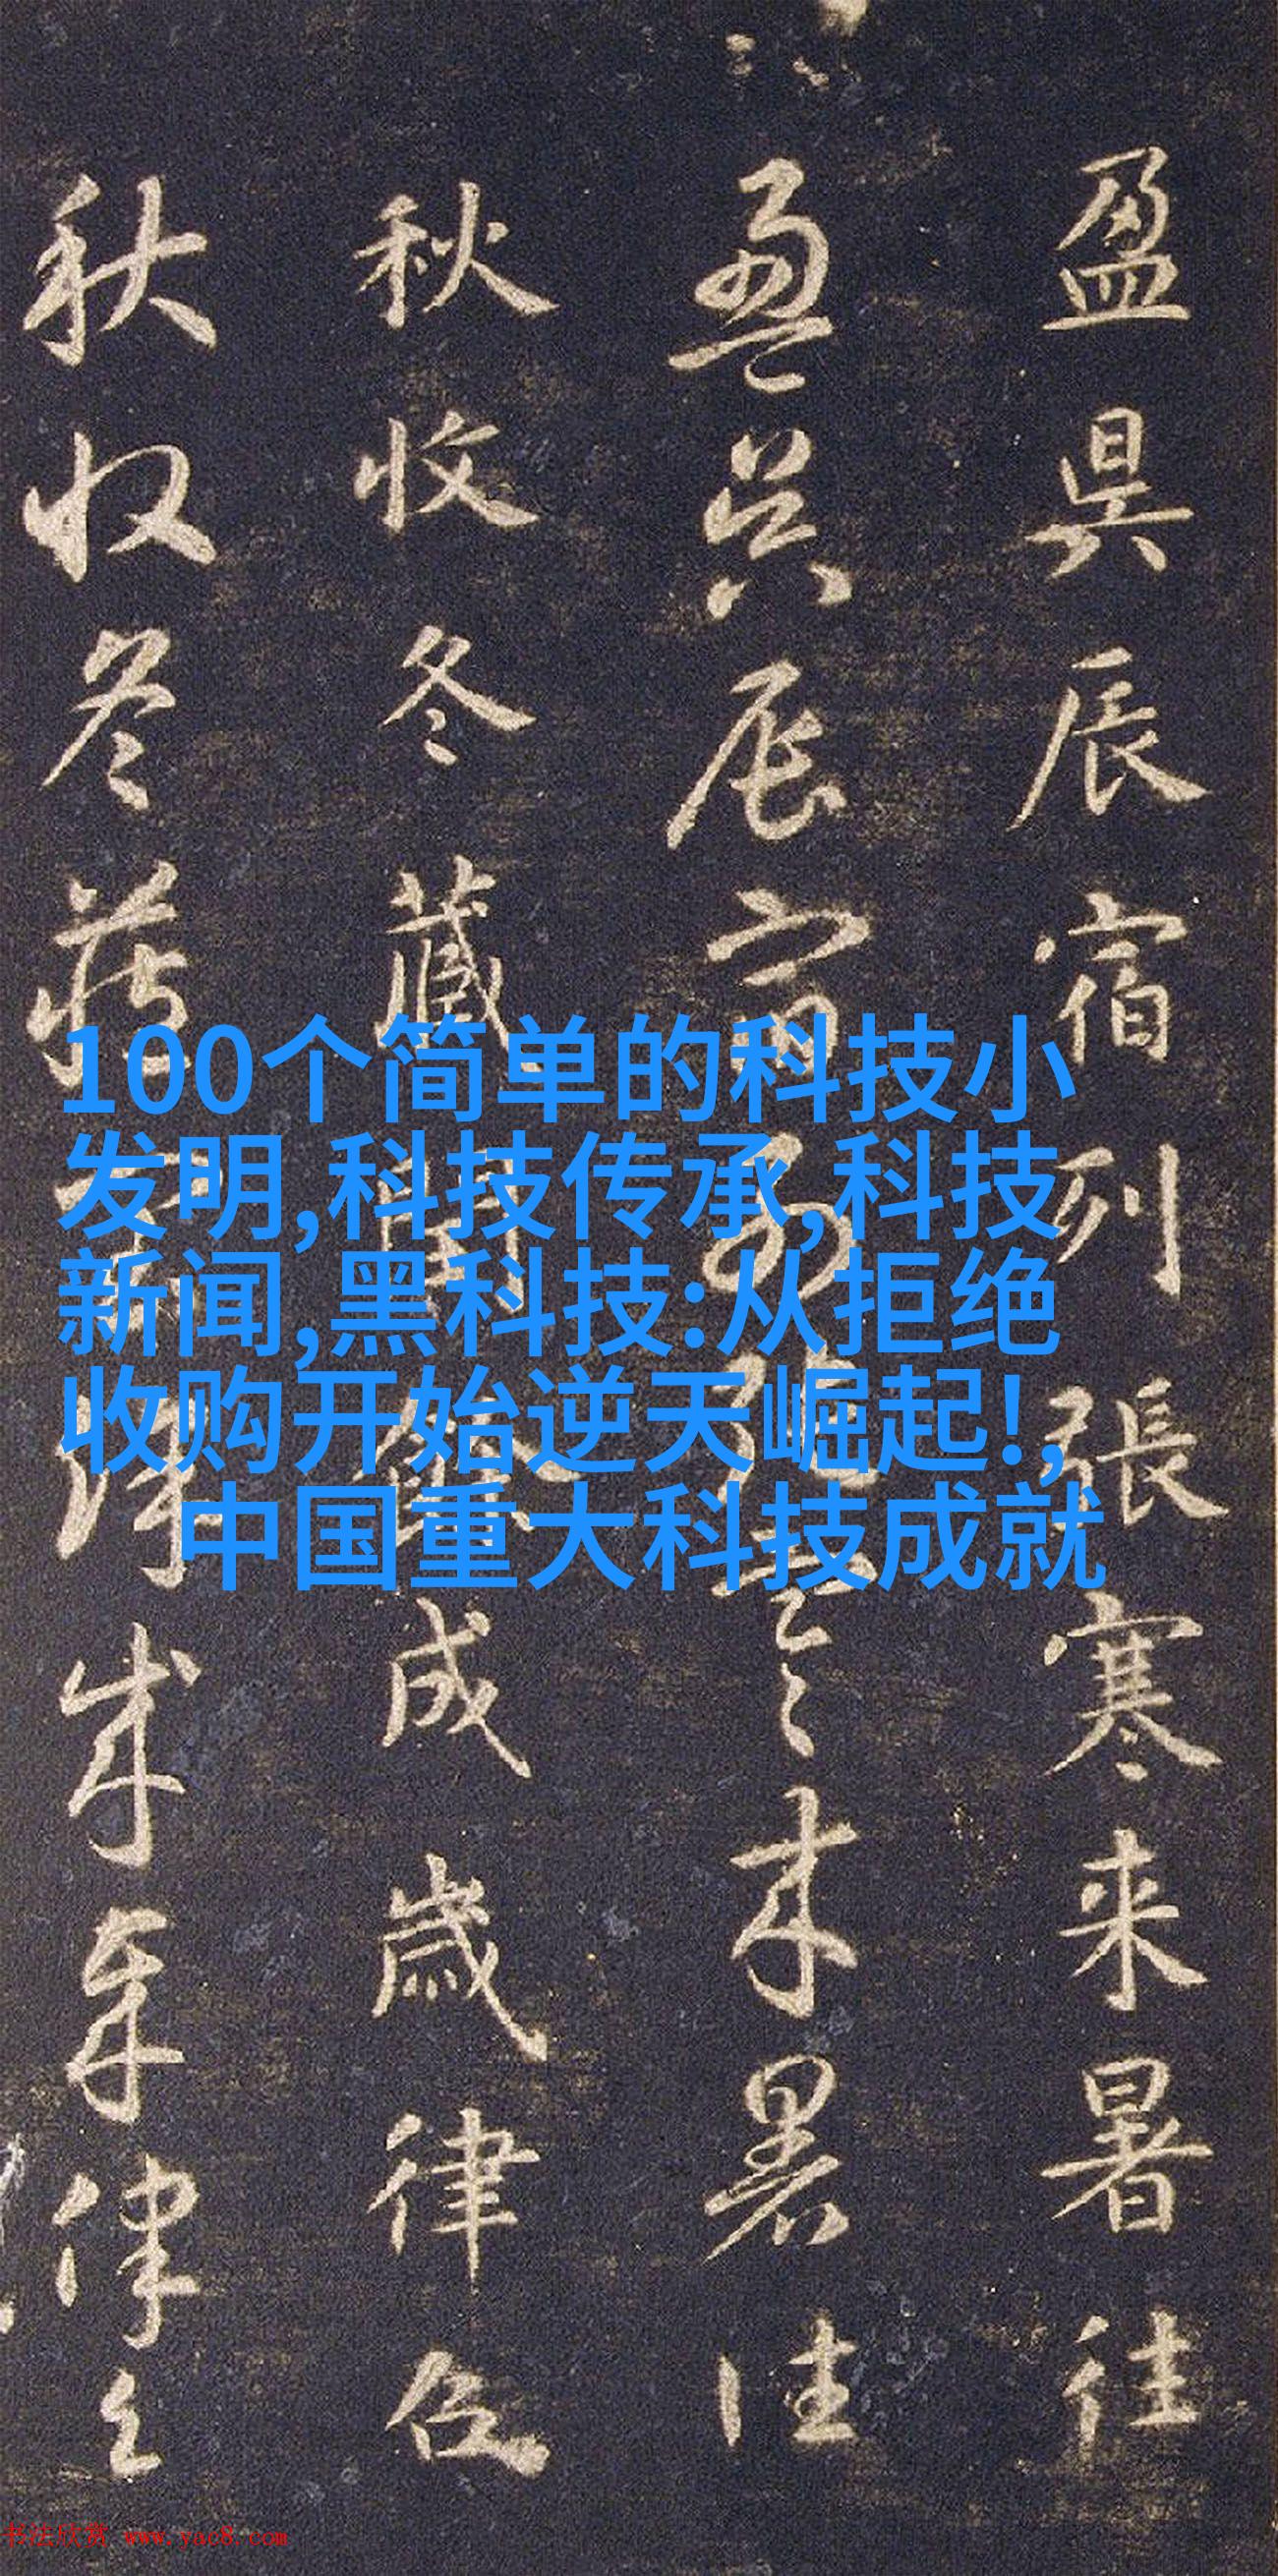 盈昃辰宿列張寒来暑往
盈昃辰宿列張寒来暑往
秋收冬藏閏餘成歲律召
秋收冬藏閏餘成歲律召
100个简单的科技小
发明,科技传承,科技
新闻,黑科技:从拒绝
收购开始逆天崛起!,
中国重大科技成就
书法欣赏 www.yac8.com